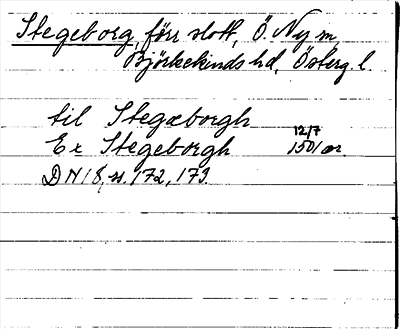 Stegeborg, förr slott, Ö. Ny sn,
Björkekinds hd, Österg. l.
til Stegæborgh
Ex Stegeborgh 12/7 1501 or.
DN 18, s. 172, 173.